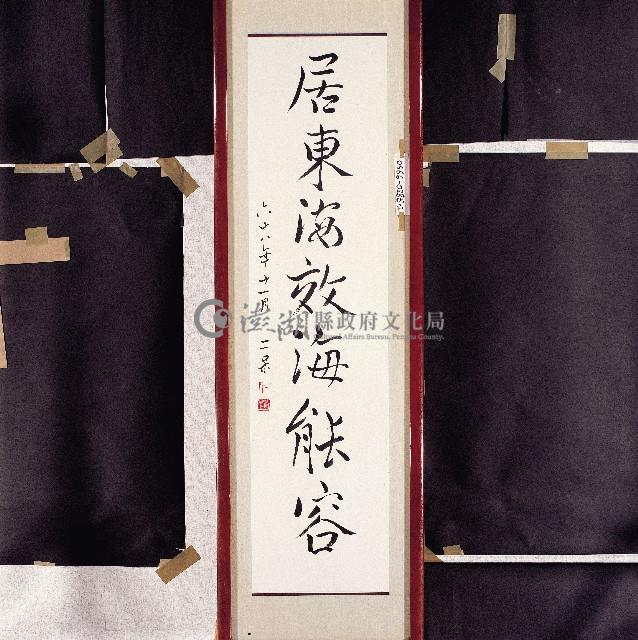 居東海效海能容
六十八年十一月 二呆
澎湖縣政府文化局
Cultural Affairs Bureau, Penghu County.